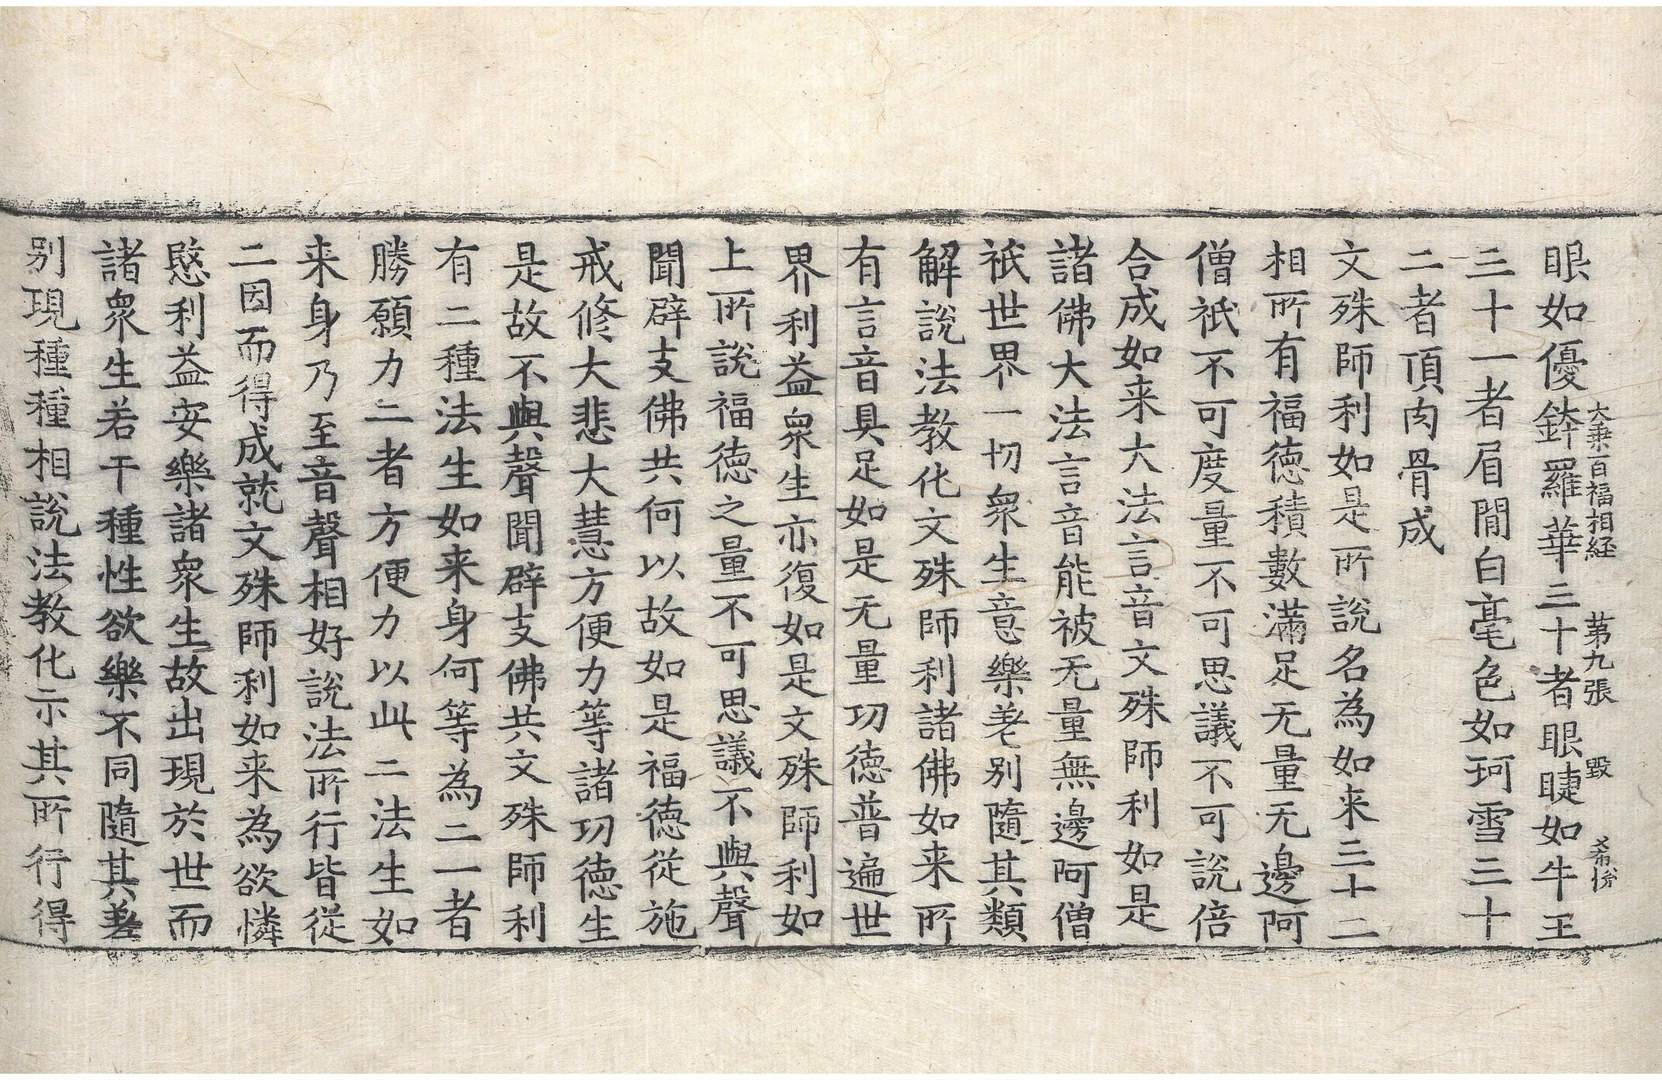 大乗百福相経 第九張 毀 希份
眼如優鉢羅華三十者眼睫如牛王
三十一者眉閒白毫色如珂雪三十
二者頂肉骨成
文殊師利如是所說名為如来三十二
相所有福德積數滿足无量无邊阿
僧祇不可度量不可思議不可說倍
合成如来大法言音文殊師利如是
諸佛大法言音能被无量無邊阿僧
祇世界一切衆生意樂差别隨其類
解說法教化文殊師利諸佛如来所
有言音具足如是无量功德普遍世
界利益衆生亦復如是文殊師利如
上所說福德之量不可思議不與聲
聞辟支佛共何以故如是福德從施
戒修大悲大慧方便力等諸功德生
是故不與聲聞辟支佛共文殊師利
有二種法生如来身何等為二一者
勝願力二者方便力以此二法生如
来身乃至音聲相好說法所行皆從
二因而得成就文殊師利如来為欲憐
愍利益安樂諸衆生故出現於世而
諸衆生若干種性欲樂不同隨其差
别現種種相說法教化示其所行得